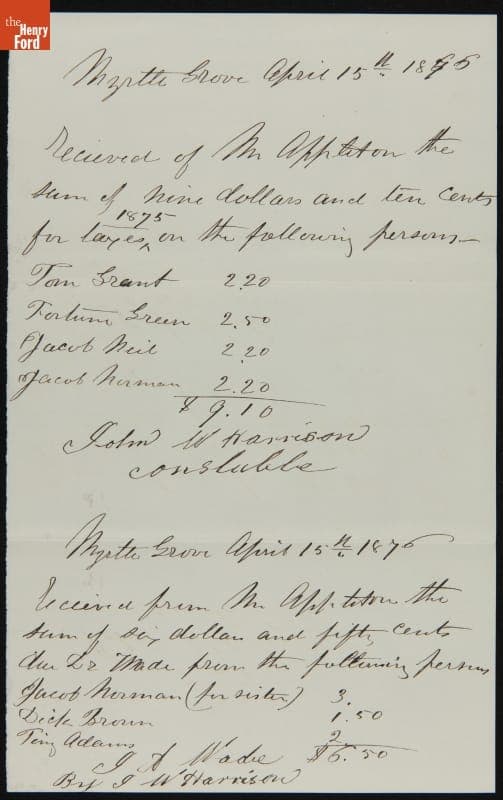 the
Henry
Ford
Myrtle Grove April 15th 1876
Recieved of Mr Appleton the
sum of nine dollars and ten cents
1875
for taxes, on the following persons—
Tom Grant 2.20
Fortune Green 2.50
Jacob Neil 2.20
Jacob Norman 2.20
$ 9.10
John W Harrison
Constable
Myrtle Grove April 15th 1876
Recieved from Mr Appleton the
sum of six dollars and fifty cents
due Dr Wade from the following persons
Jacob Norman (for sister) 3.
Dick Brown 1.50
Tiny Adams 2
$6.50
J A Wade
By J W Harrison